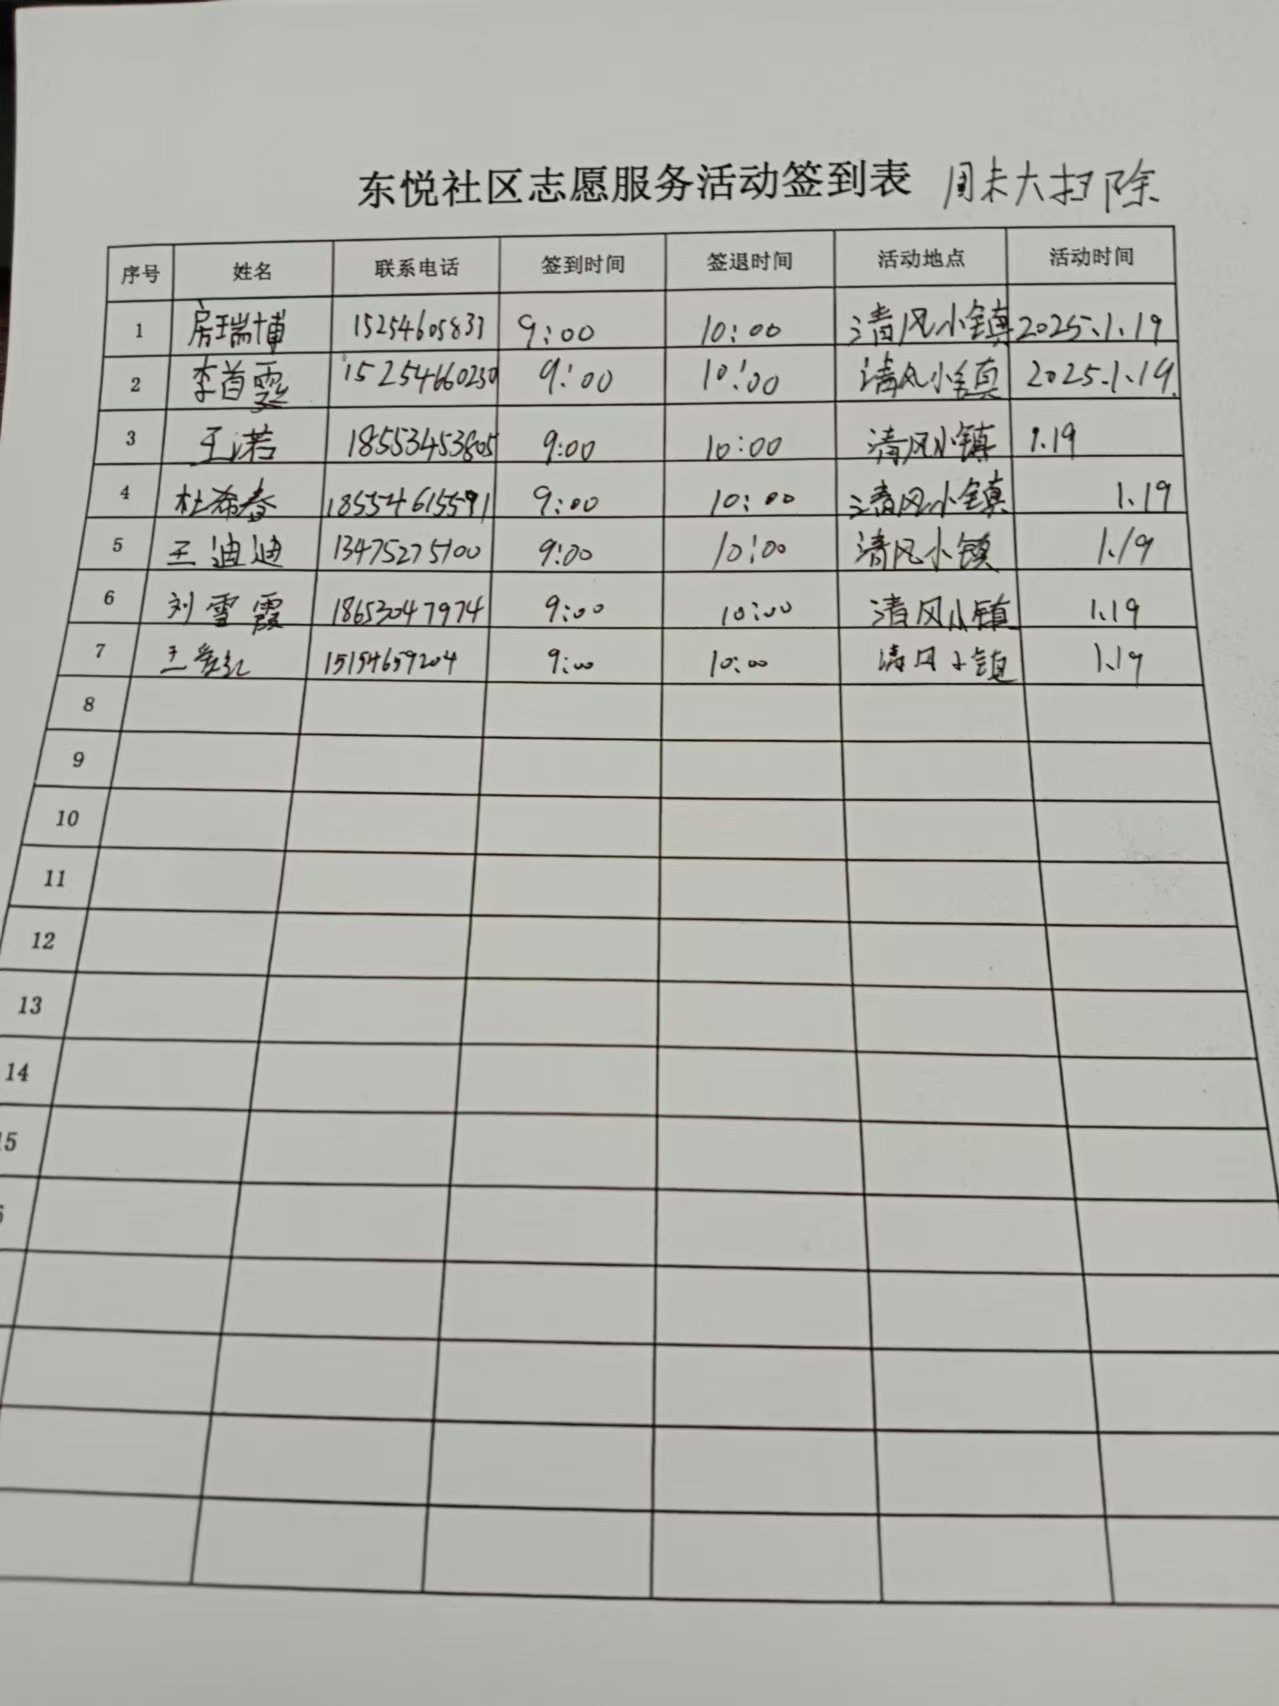 东悦社区志愿服务活动签到表 周末大扫除
序号 姓名 联系电话 签到时间 签退时间 活动地点 活动时间
1 房瑞博 15254605833 9:00 10:00 清风小镇 2025.1.19
2 李首霆 15254660230 9:00 10:00 清风小镇 2025.1.19.
3 王诺 18553453805 9:00 10:00 清风小镇 1.19
4 杜希春 18554615591 9:00 10:00 清风小镇 1.19
5 王迪迪 13475275100 9:00 10:00 清风小镇 1.19
6 刘雪霞 18653047974 9:00 10:00 清风小镇 1.19
7 王 15154659204 9:00 10:00 清风小镇 1.19
8
9
10
11
12
13
14
15